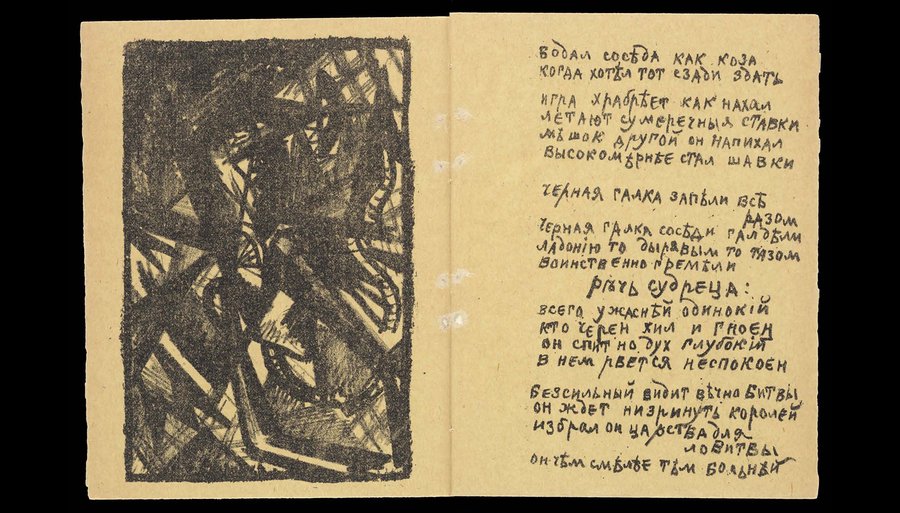 бодал сосѣда как коза
когда хотѣл тот сзади сдать
игра храбрѣет как нахал
летают сумеречныя ставки
мѣшок другой он напихал
высокомѣрнѣе стал шавки
черная галка запѣли всѣ
разом
черная галка сосѣди галдѣли
ладонію то дырявым то тазом
воинственно гремѣли
рѣчь судреца:
всего ужаснѣй одинокій
кто черен хил и гноен
он спит но дух глубокій
в нем рвется неспокоен
безсильный видит вѣчно битвы
он ждет низринуть королей
избрал он царства для
ловитвы
он чѣм смѣлѣе тѣм больнѣй